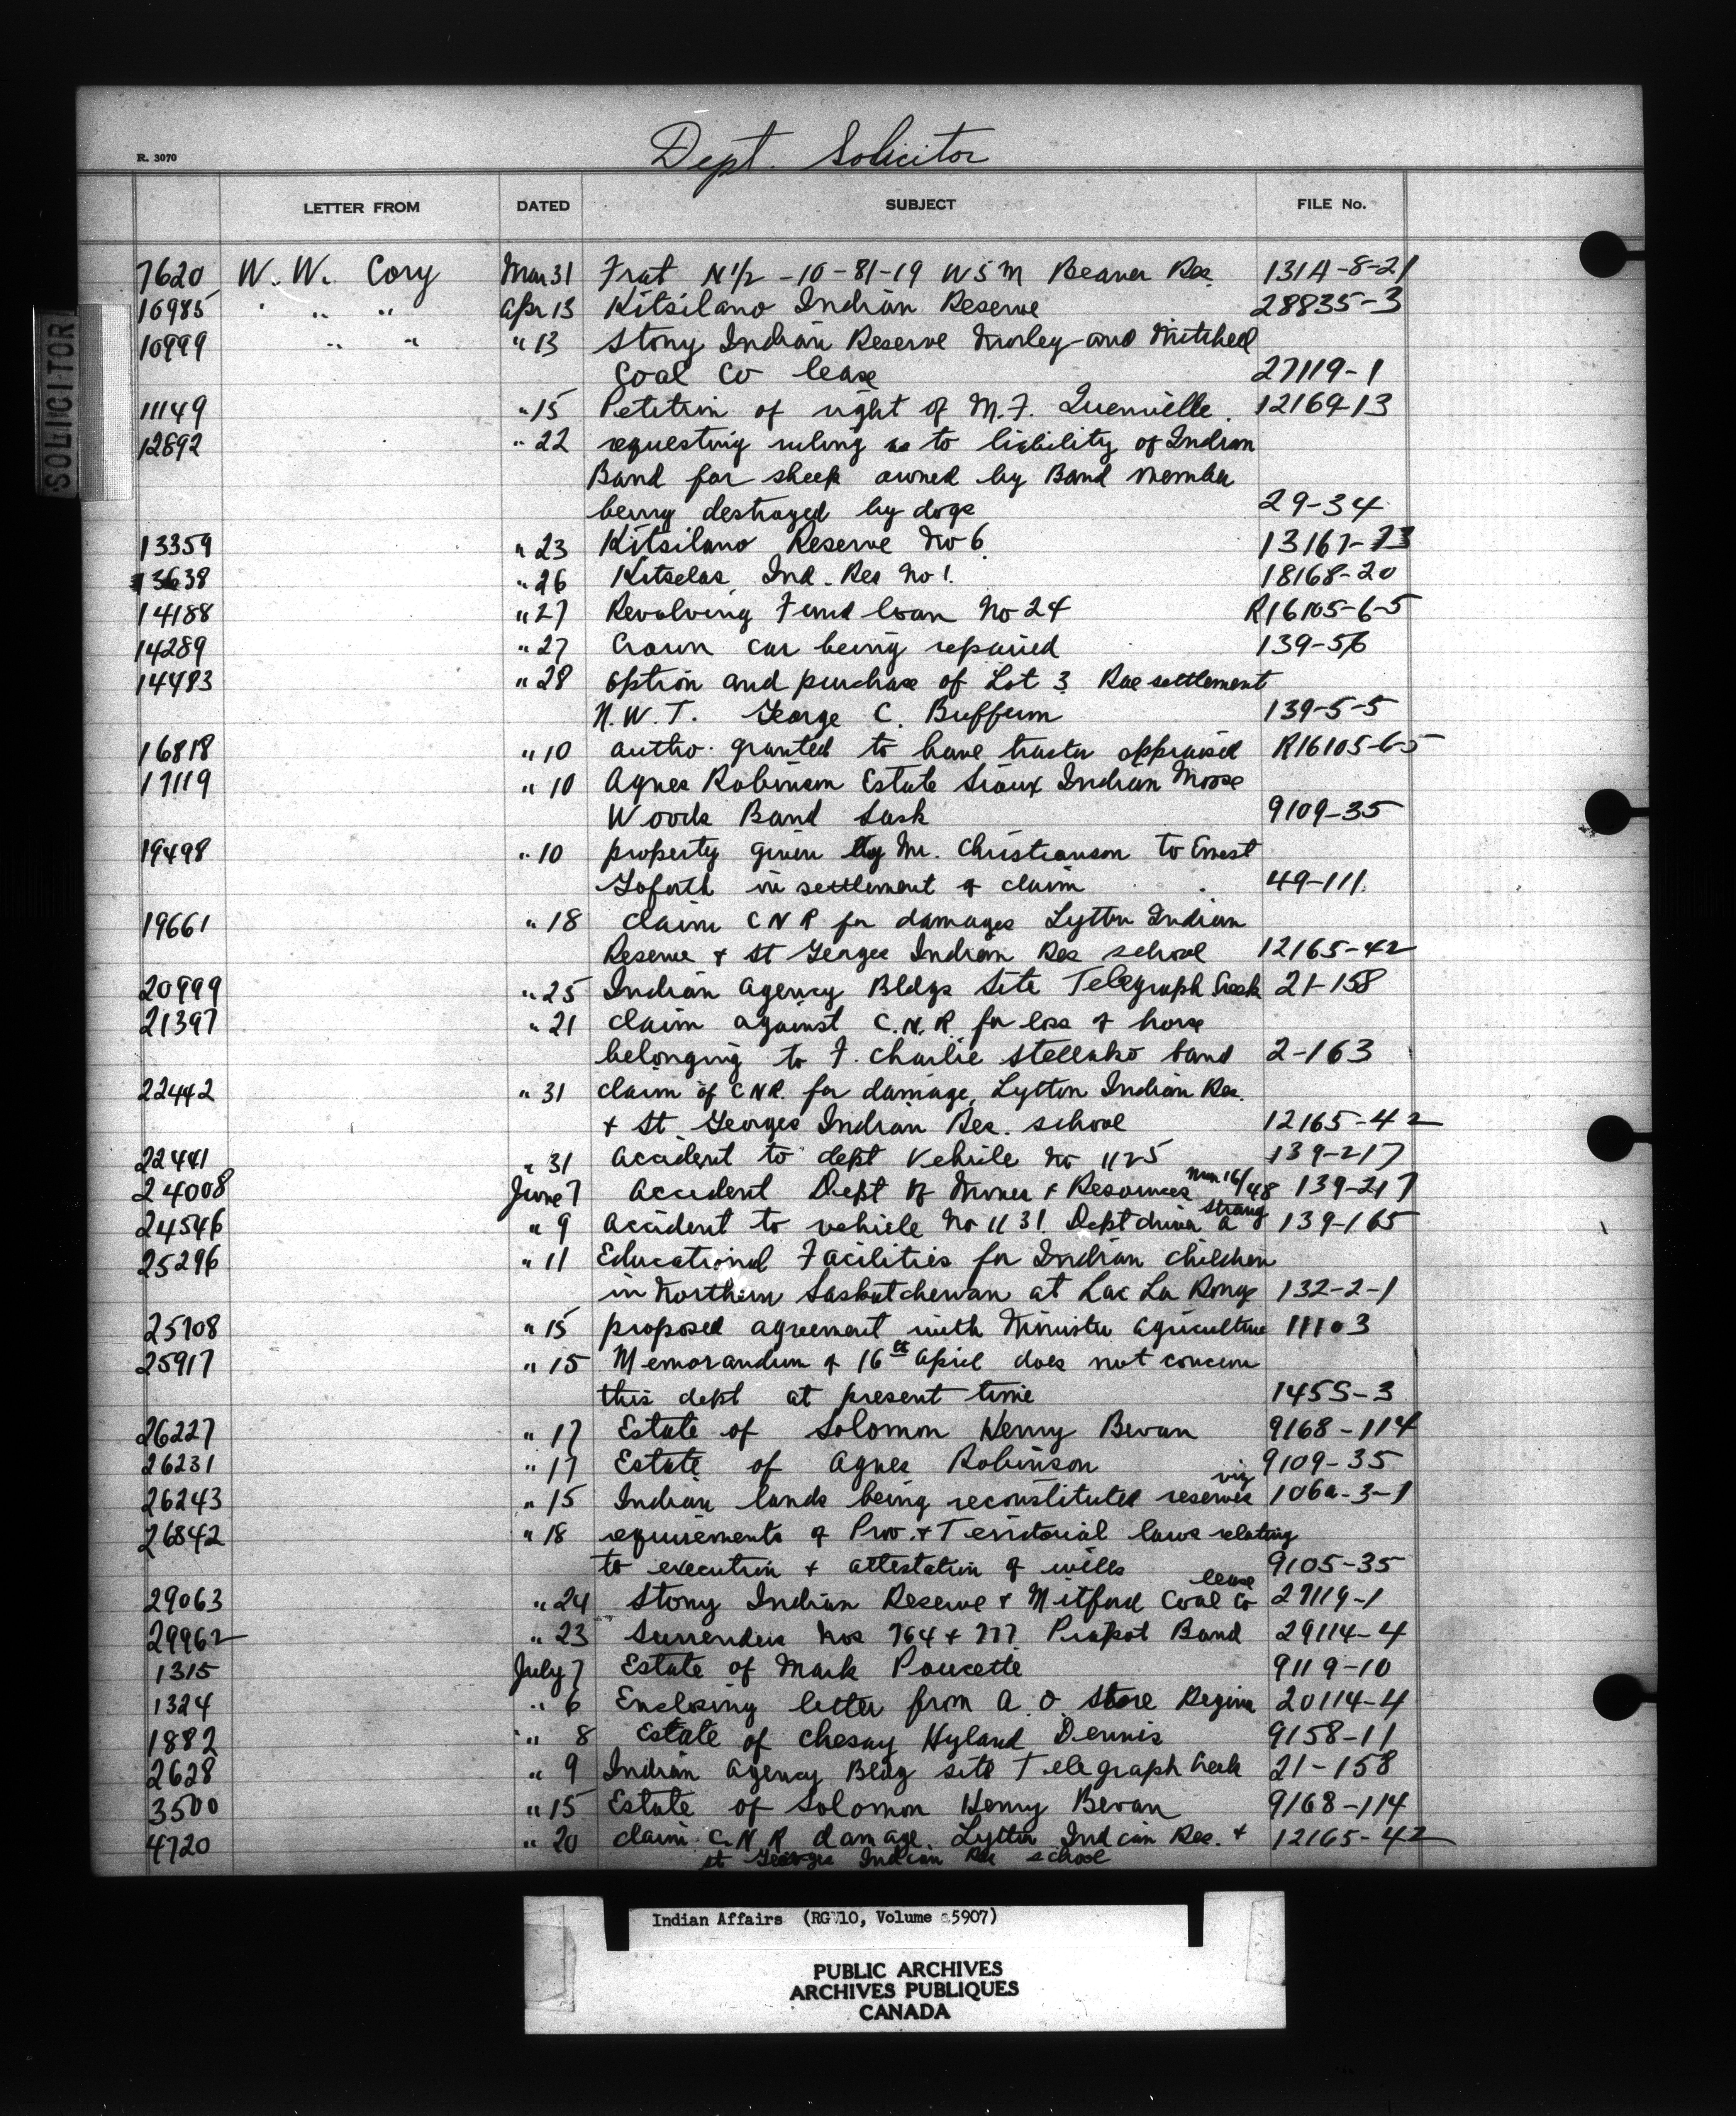 Dept. Solicitor
R. 3070
LETTER FROM DATED SUBJECT FILE No.
SOLICITOR
7620 W. W. Cory Mar 31 Frat N½ -10-81-19 W5M Beaver Res. 131A-8-21
10985 " " " Apr 13 Kitsilano Indian Reserve 28835-3
10999 " " " 13 Stony Indian Reserve Morley and Mitchell
Coal Co lease 27119-1
11149 " 15 Petition of right of M.F. Quenville. 12169-13
12892 " 22 requesting ruling as to liability of Indian
Band for sheep owned by Band member
being destroyed by dogs 29-34
13359 " 23 Kitsilano Reserve No 6 13167-23
13638 " 26 Kitselas Ind. Res No 1. 18168-20
14188 " 27 Revolving Fund loan No 24 R16105-6-5
14289 " 27 Crown car being repaired 139-56
14483 " 28 option and purchase of Lot 3 Rae settlement
N.W.T. George C. Buffum 139-5-5
16818 " 10 autho. granted to have tractor appraised R16105-6-5
17119 " 10 Agnes Robinson Estate Sioux Indian Moose
Woods Band Sask 9109-35
19498 " 10 property given by Mr. Christianson to Ernest
Goforth in settlement of claim 49-111
19661 " 18 claim C N R for damages Lytton Indian
Reserve + St Georges Indian Res school 12165-42
20999 " 25 Indian Agency Bldgs Site Telegraph Creek 21-158
21397 " 21 claim against C.N.R. for loss of horse
belonging to F. Charlie Stellako band 2-163
22442 " 31 claim of CNR. for damage, Lytton Indian Res.
+ St. Georges Indian Res. school 12165-42
22441 " 31 Accident to dept Vehicle No 1125 139-217
24008 June 7 Accident Dept of Mines + Resources Mar 16/48 139-217
24546 " 9 Accident to vehicle No 1131 Dept driver A Strang 139-165
25296 " 11 Educational Facilities for Indian children
in Northern Saskatchewan at Lac La Ronge 132-2-1
25708 " 15 proposed agreement with Minister Agriculture 11103
25917 " 15 Memorandum of 16th April does not concern
this dept at present time 1455-3
26227 " 17 Estate of Solomon Henry Bevan 9168-114
26231 " 17 Estate of Agnes Robinson 9109-35
26243 " 15 Indian lands being reconstituted reserves viz 106a-3-1
26842 " 18 requirements of Prov. + Territorial laws relating
to execution + attestation of wills 9105-35
29063 " 24 Stony Indian Reserve + Mitford Coal Co lease 27119-1
29962 " 23 Surrenders Nos 764 + 777 Piapot Band 29114-4
1315 July 7 Estate of Mark Poucette 9119-10
1324 " 6 Enclosing letter from A. O. Store Regina 20114-4
1882 " 8 Estate of Chesny Hyland Dennis 9158-11
2628 " 9 Indian Agency Bldg site Telegraph Creek 21-158
3500 " 15 Estate of Solomon Henry Bevan 9168-114
4720 " 20 claim C.N.R damage. Lytton Indian Res. + 12165-42
St Georges Indian Res school
Indian Affairs (RG 10, Volume 5907)
PUBLIC ARCHIVES
ARCHIVES PUBLIQUES
CANADA